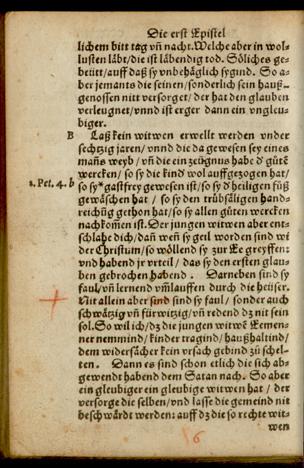 Die erst Epistel
lichem bitt tag vñ nacht. Welche aber in wol-
lusten läbt/die ist läbendig tod. Söliches ge-
beütt/auff daß sy vnbehäglich sygind. So a-
ber jemants die seinen/sonderlich sein hauß-
genossen nitt versorget/der hat den glauben
verleugnet/vnnd ist erger dann ein vngleu-
biger.
B Laß kein witwen erwellt werden vnder
sechtzig jaren/vnnd die da gewesen sey eines
mañs weyb/vñ die ein zeügnus habe d' gůtẽ
wercken/so sy die kind wol auffgezogen hat/
1. Pet. 4. b
so sy*gastfrey gewesen ist/so sy d' heiligen füß
gewäschen hat / so sy den trübsäligen hand-
reichũg gethon hat/so sy allen gůten wercken
nachkom̃en ist. Der jungen witwen aber ent-
schlahe dich/dañ weñ sy geil worden sind wi
der Christum/so wöllend sy zur Ee greyffen:
vnd habend jr vrteil/das sy den ersten glau-
ben gebrochen habend. Darneben sind sy
faul/vñ lernend vm̃lauffen durch die heüser.
Nit allein aber sind sy faul/sonder auch
schwätzig vñ fürwitzig/vñ redend dz nit sein
sol. So wil ich/dz die jungen witwẽ Eemen-
ner nemmind/kinder tragind/haußhaltind/
dem widersächer kein vrsach gebind zů schel-
ten. Dann es sind schon etlich die sich ab-
gewendt habend dem Satan nach. So aber
ein gleubiger ein gleubige witwen hat / der
versorge die selben/vnd lasse die gemeind nit
beschwärdt werden: auff dz die so rechte wit-
wen